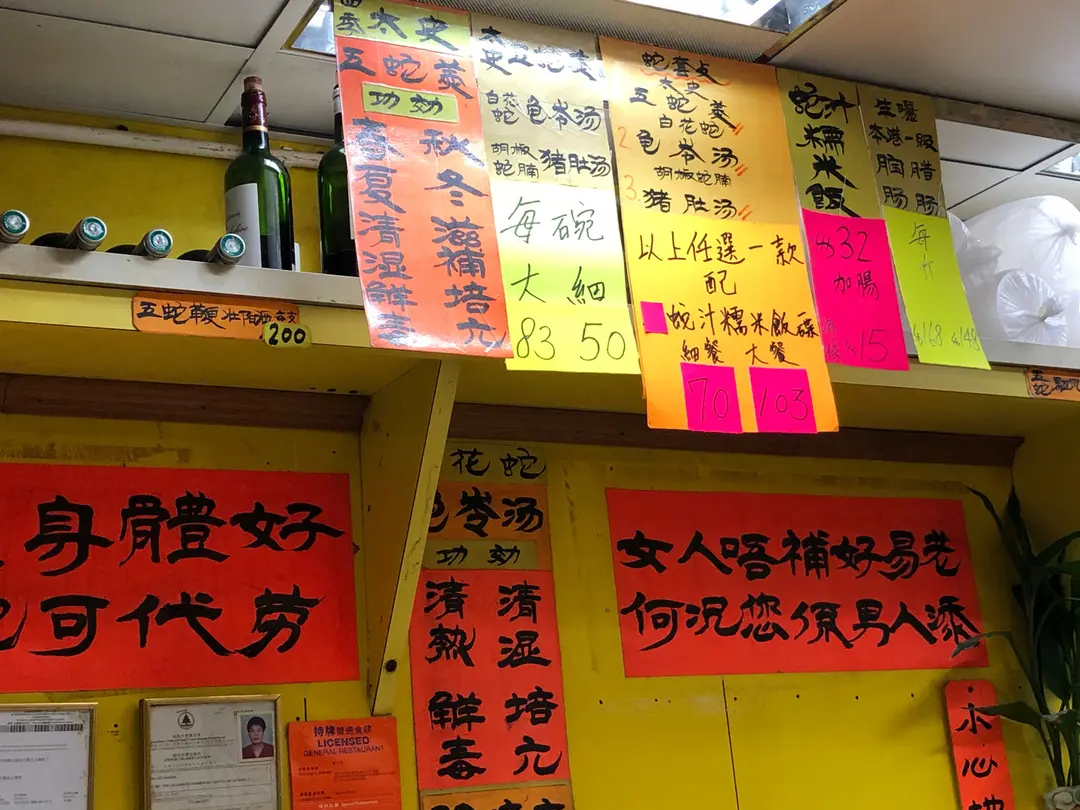 四季太史
五蛇羹
功効
春夏清湿解毒
秋冬滋補培亢
太史五蛇羹
白花蛇龟苓汤
胡椒蛇腩猪肚汤
每碗
大 細
83 50
蛇套歺
太史
五蛇羹
白花蛇
2.龟苓汤
胡椒蛇腩
3.猪肚汤
以上任選一款
配
蛇汁糯米飯碟
細餐 大餐
70 103
蛇汁糯米飯
32
加腸
15
生曬
本港一級
腊肠
每斤
168 148
五蛇鞭
200
身體好
可代劳
花蛇
龟苓汤
功効
清熱解毒
清湿培亢
女人唔補好易老
何況您係男人添
持牌普通食肆
LICENSED
GENERAL RESTAURANT
水心